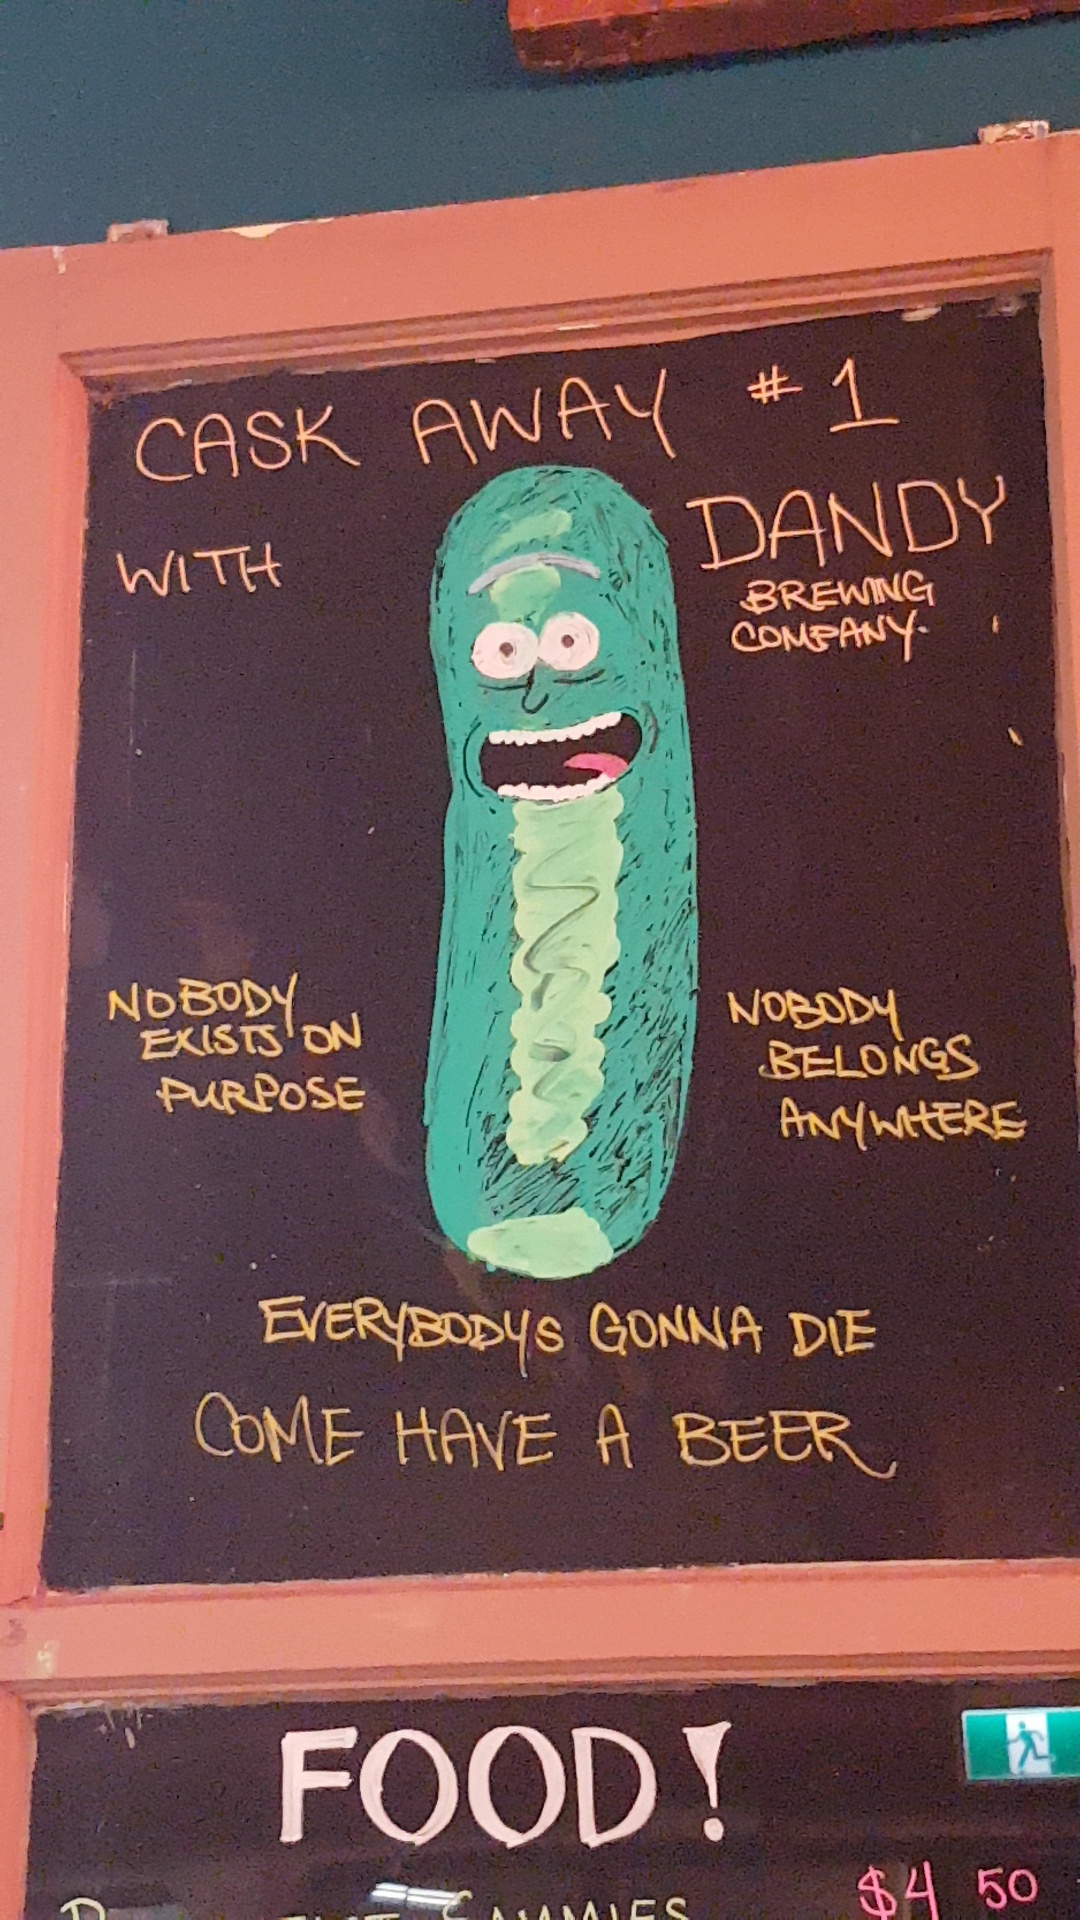 CASK AWAY #1
WITH
DANDY
BREWING
COMPANY.
NOBODY
EXISTS ON
PURPOSE
NOBODY
BELONGS
ANYWHERE
EVERYBODYS GONNA DIE
COME HAVE A BEER
FOOD!
$4 50